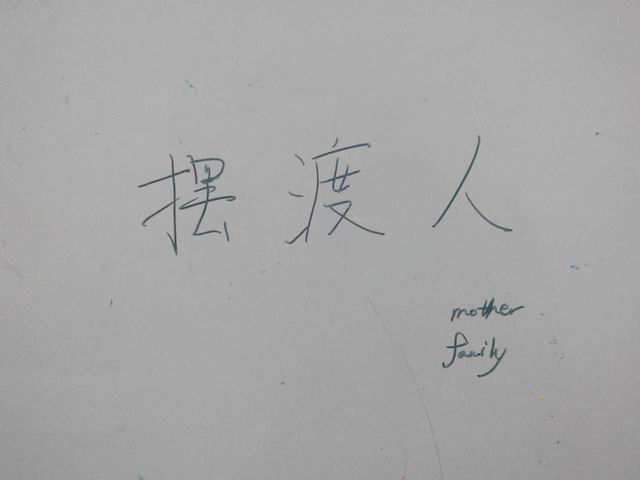 摆渡人
mother
family